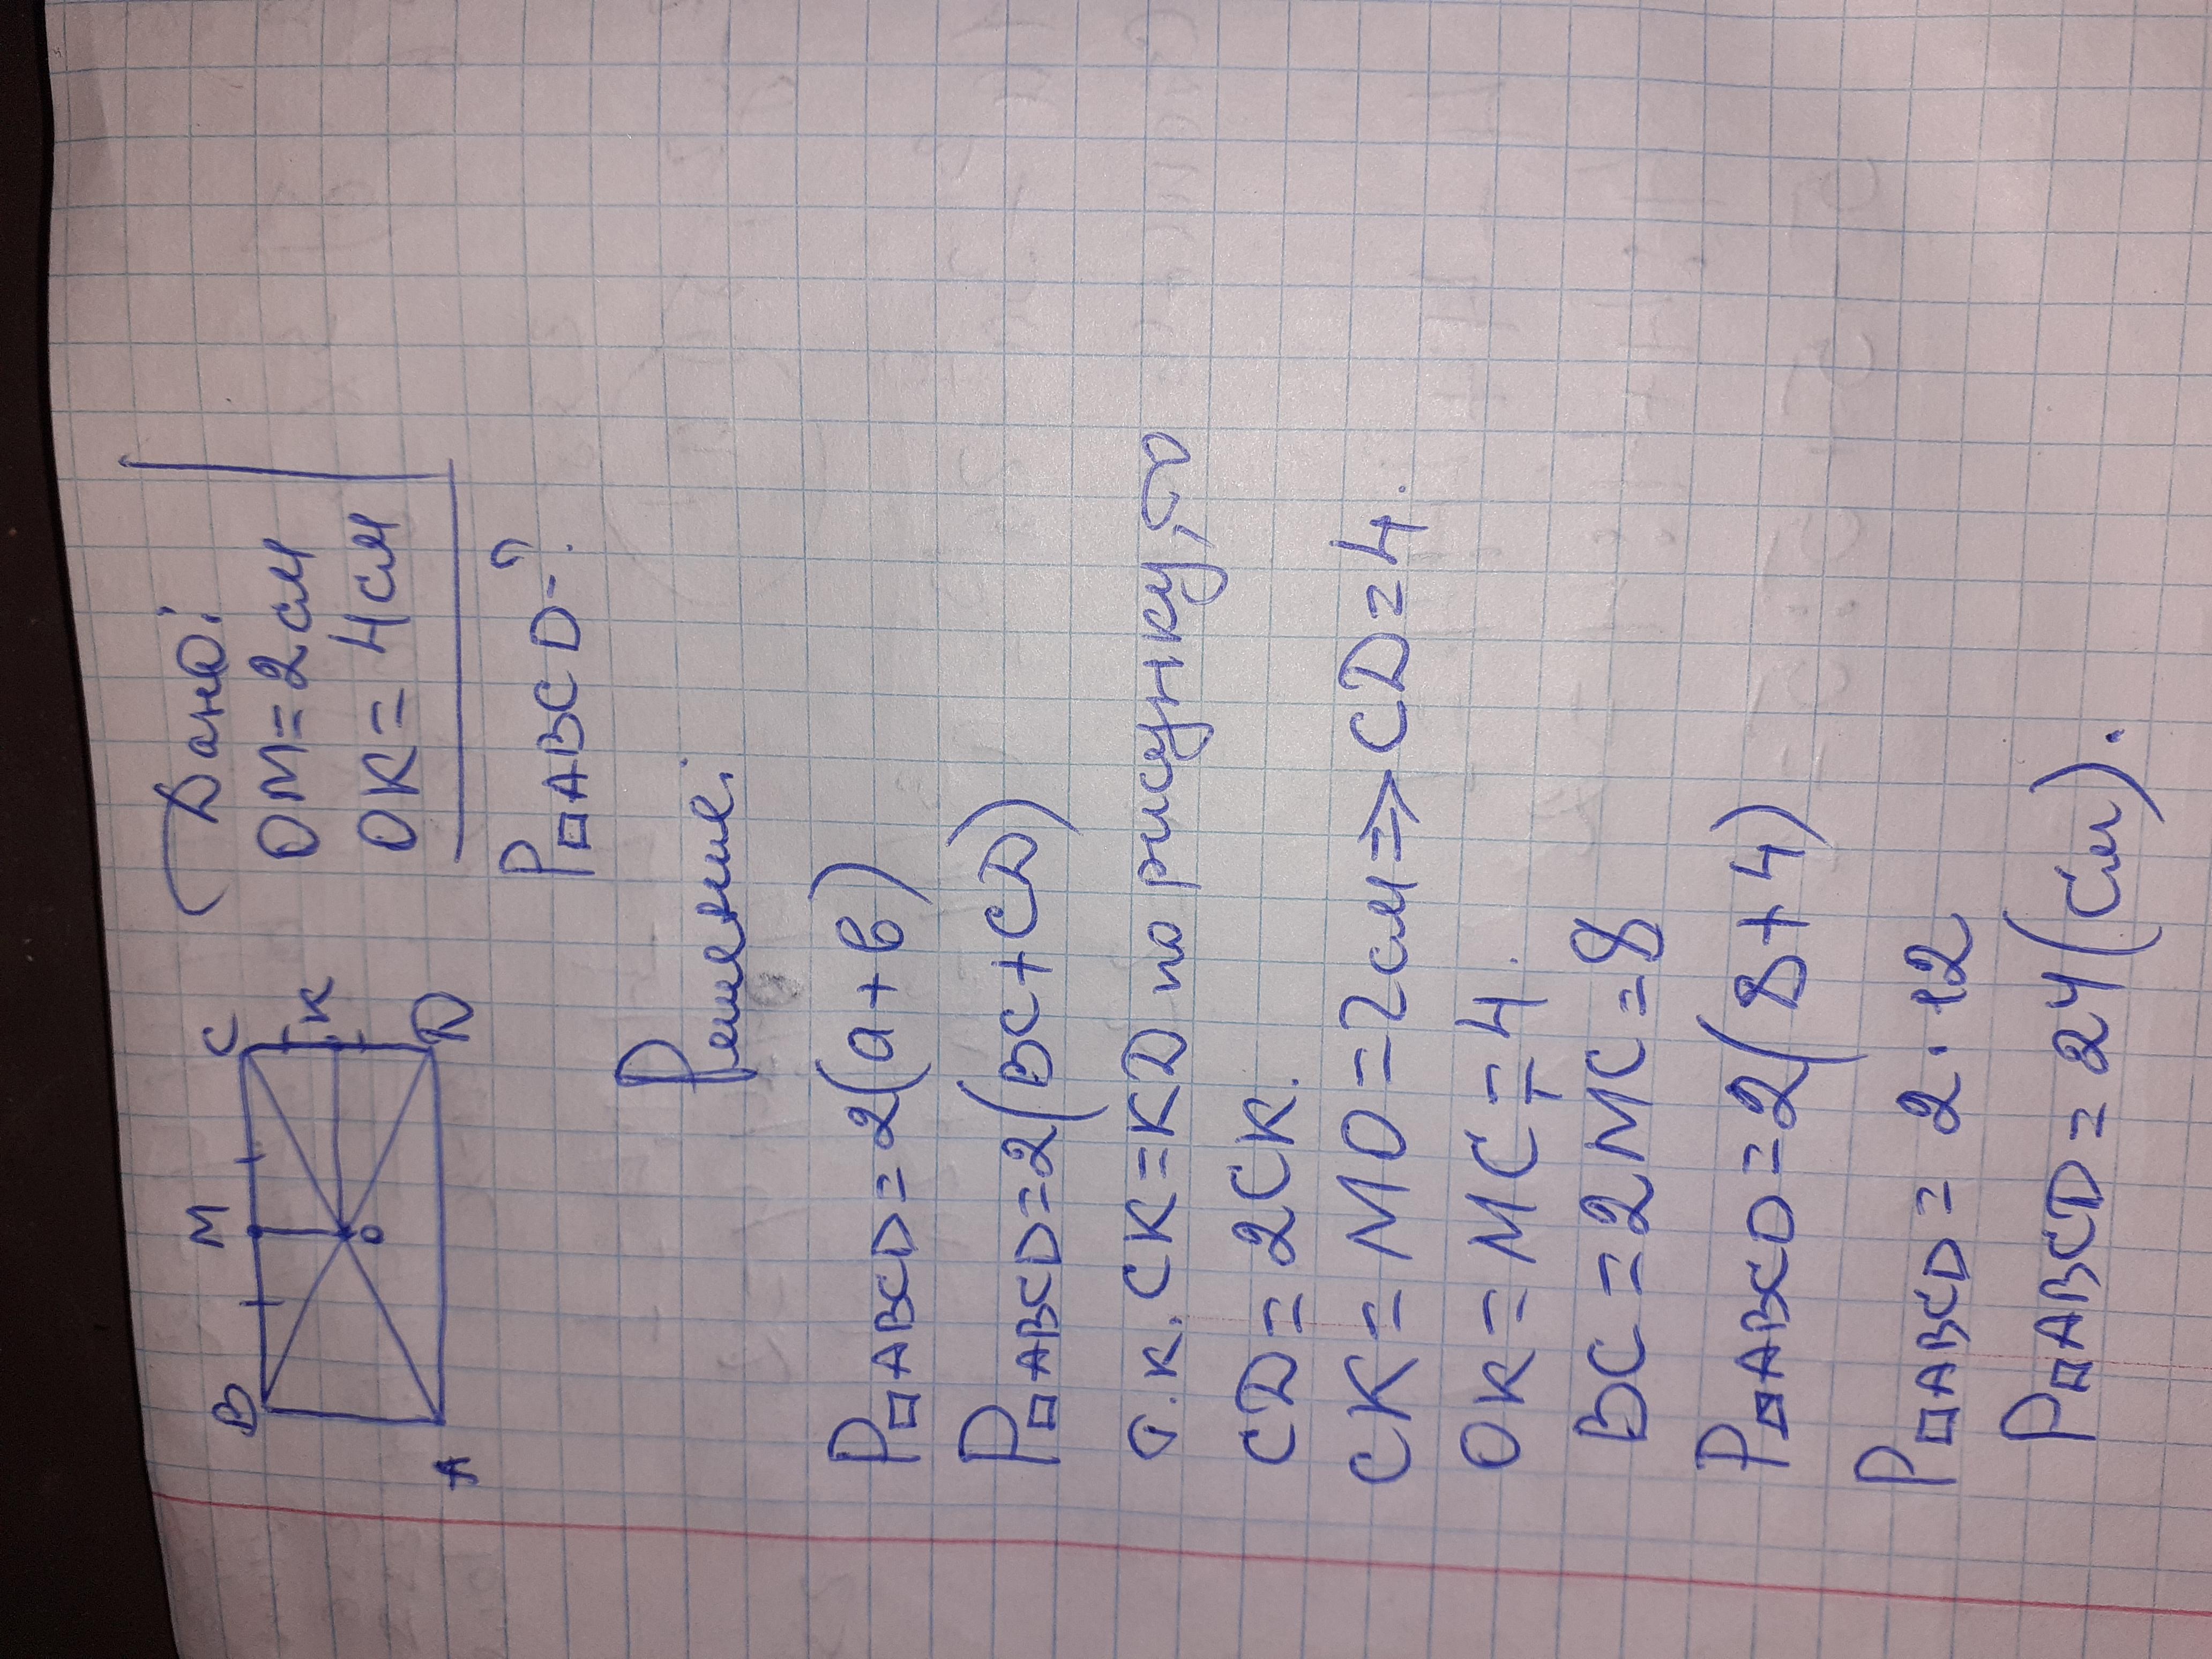 B M C
K
O
A D
Дано:
OM=2см
OK=4см
P□ABCD-?
Решение:
P□ABCD=2(a+b)
P□ABCD=2(BC+CD)
т.к. CK=KD по рисунку, то
CD=2CK.
CK=MO=2см=>CD=4.
OK=MC=4.
BC=2MC=8
P□ABCD=2(8+4)
P□ABCD=2·12
P□ABCD=24(см).